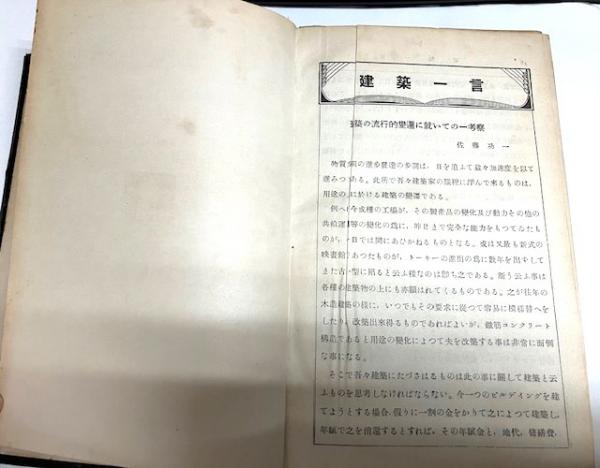 建築一言
築の流行的變遷に就いての一考察
佐藤功一
物質 明の進步發達の步調は、日を追ふて益々加速度を以て
進みつ ある。此所で吾々建築家の腦裡に浮んで來るものは、
用途の に於ける建築の變遷である。
例へ 今或種の工場が、その製產品の變化及び動力その他の
共給運 等の變化の爲に、昨日まで完全な能力をもつてゐたも
のが、 日では間にあひかねるものとなる。或は又最も新式の
映畫館 あつたものが、トーキーの進出の爲に數年を出ずして
また古 型に陷ると云ふ樣なのは卽ち之である。斯う云ふ事は
各種の建築物の上にも亦顯はれてくるものである。之が往年の
木造建築の樣に、いつでもその要求に從つて容易に模樣替へを
したり、改築出來得るものであればよいが、鐵筋コンクリート
構造であると用途の變化によつて夫を改築する事は非常に面倒
な事になる。
そこで吾々建築にたづさはるものは此の事に關して建築と云
ふものを思考しなければならない。今一つのビルデイングを建
てようとする場合、假りに一割の金をかりて之によつて建築し、
年賦で之を償還するとすれば、その年賦金と、地代、修繕費、